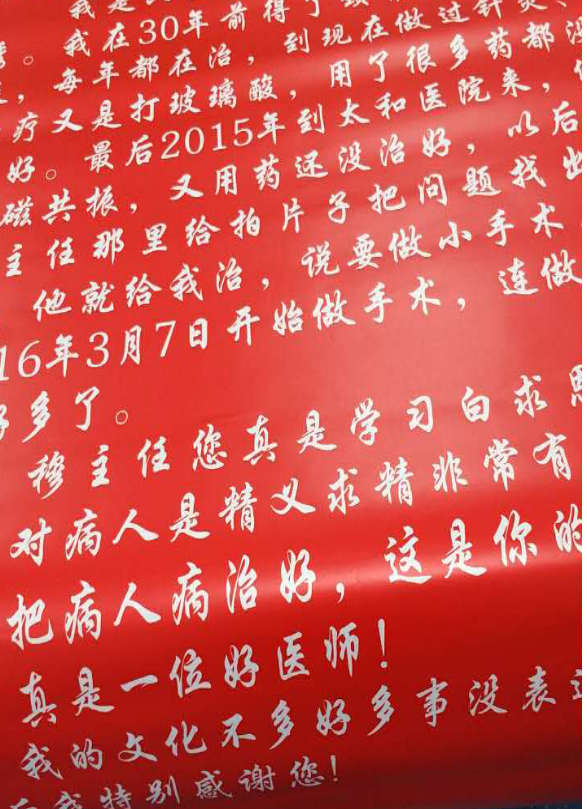 我是
。我在30年前得了颈
，每年都在治，到现在做过针灸
疗又是打玻璃酸，用了很多药都没
好。最后2015年到太和医院来，
磁共振，又用药还没治好，以后
主任那里给拍片子把问题找出
他就给我治，说要做小手术
16年3月7日开始做手术，连做
好多了。
穆主任您真是学习白求恩
对病人是精义求精非常有
把病人病治好，这是你的
真是一位好医师！
我的文化不多好多事没表达
我特别感谢您！